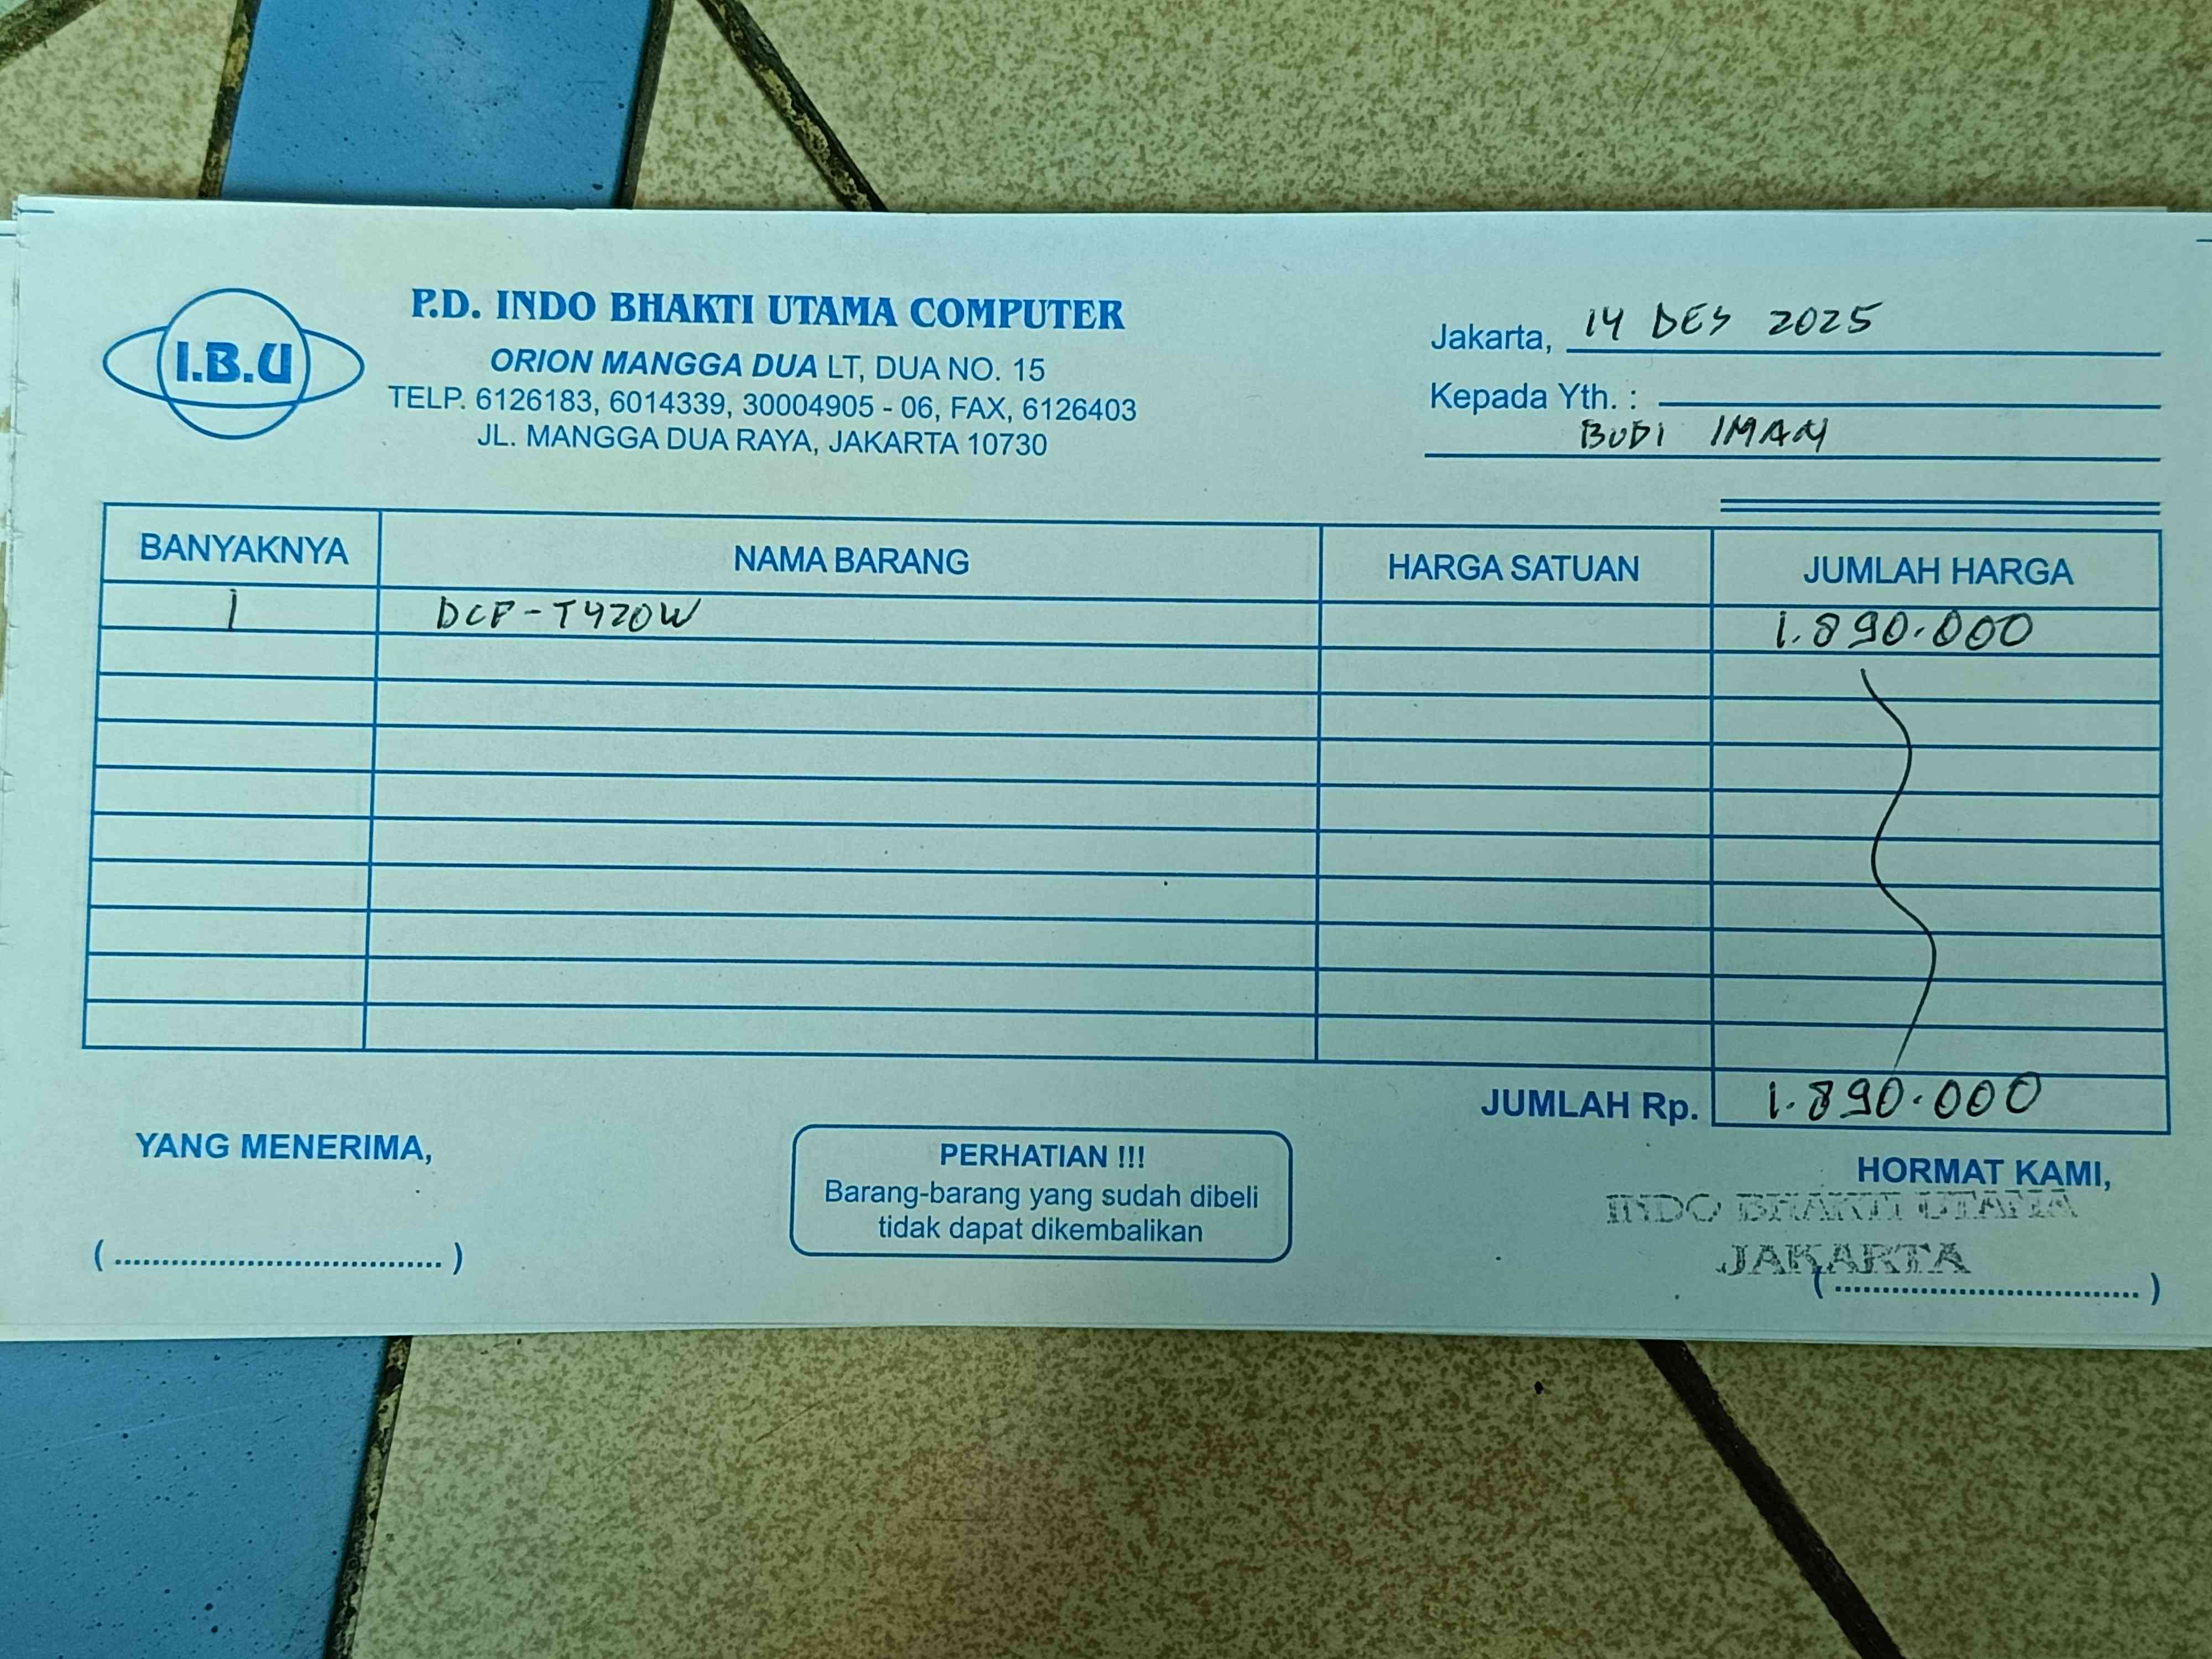 I.B.U
P.D. INDO BHAKTI UTAMA COMPUTER
ORION MANGGA DUA LT, DUA NO. 15
TELP. 6126183, 6014339, 30004905 - 06, FAX, 6126403
JL. MANGGA DUA RAYA, JAKARTA 10730
Jakarta, 14 DES 2025
Kepada Yth. :
BUDI IMAN
BANYAKNYA NAMA BARANG HARGA SATUAN JUMLAH HARGA
1 DCP-T420W 1.890.000
JUMLAH Rp. 1.890.000
YANG MENERIMA,
(....................................)
PERHATIAN !!!
Barang-barang yang sudah dibeli
tidak dapat dikembalikan
HORMAT KAMI,
INDO BHAKTI UTAMA
JAKARTA
(.................................)